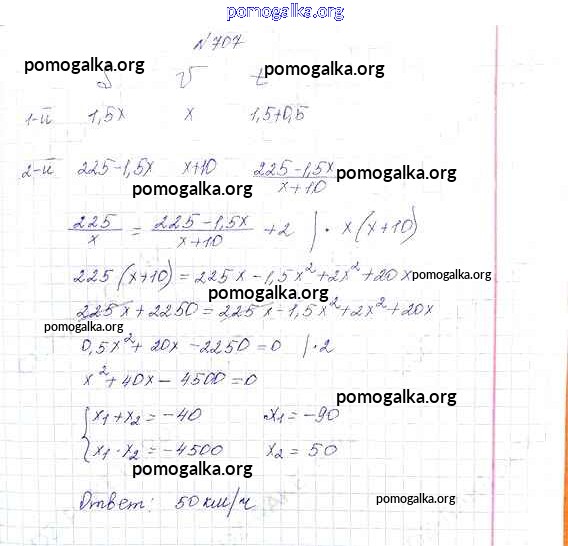 pomogalka.org
№707
pomogalka.org pomogalka.org
S V t
1-й 1,5x x 1,5+0,5
2-й 225-1,5x x+10 (225-1,5x)/(x+10) pomogalka.org
pomogalka.org
225/x = (225-1,5x)/(x+10) +2 | · x(x+10)
225(x+10)=225x-1,5x²+2x²+20x pomogalka.org
pomogalka.org
225x+2250=225x-1,5x²+2x²+20x
pomogalka.org
0,5x²+20x-2250=0 | ·2
x²+40x-4500=0
pomogalka.org
{x₁+x₂=-40 x₁=-90
{x₁·x₂=-4500 x₂=50
pomogalka.org
Ответ: 50км/ч pomogalka.org